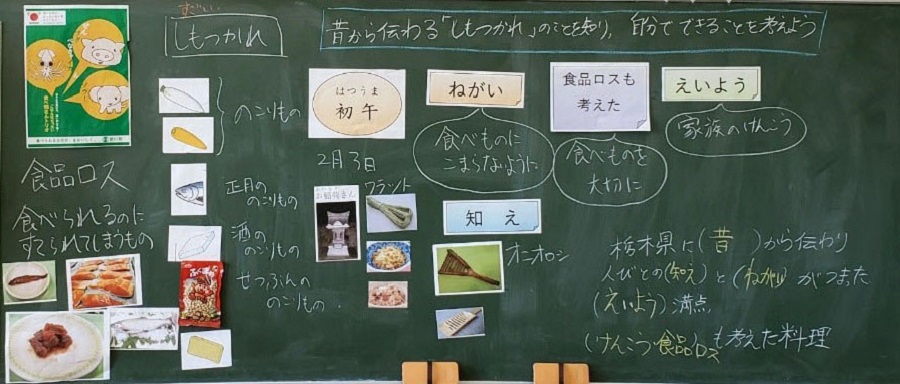 すごい
しもつかれ
昔から伝わる「しもつかれ」のことを知り、自分でできることを考えよう
食品ロス
食べられるのに
すてられてしまうもの
のこりもの
正月の
のこりもの
酒の
のこりもの
せつぶんの
のこりもの
はつうま
初午
2月3日
お稲荷さん
ワラットト
ねがい
食べものに
こまらないように
食品ロスも
考えた
食べものを
大切に
えいよう
家族のけんこう
知え
オニオロシ
栃木県に(昔)から伝わり
人びとの(知え)と(ねがい)がつまった
(えいよう)満点
(けんこう・食品ロス)も考えた料理